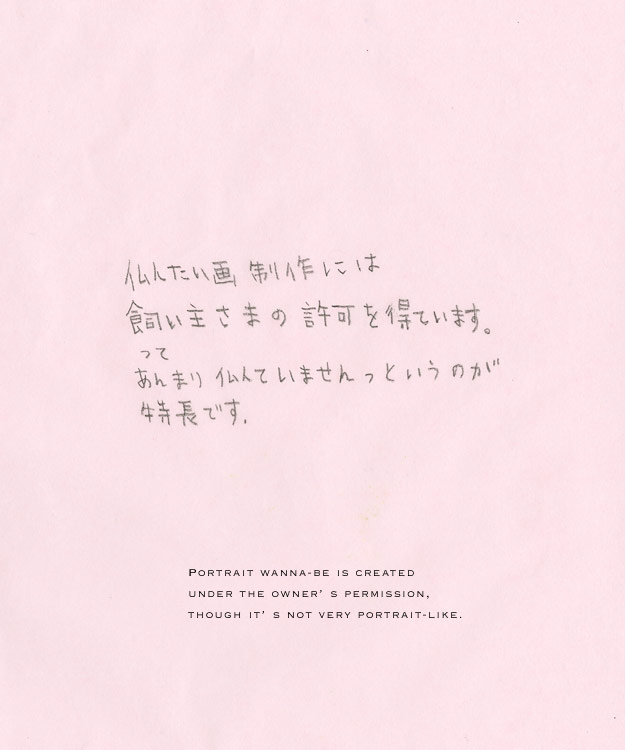 仏んたい画 制作には
飼い主さまの許可を得ています。
って
あんまり仏んていませんっというのが
特長です.
PORTRAIT WANNA-BE IS CREATED
UNDER THE OWNER' S PERMISSION,
THOUGH IT' S NOT VERY PORTRAIT-LIKE.